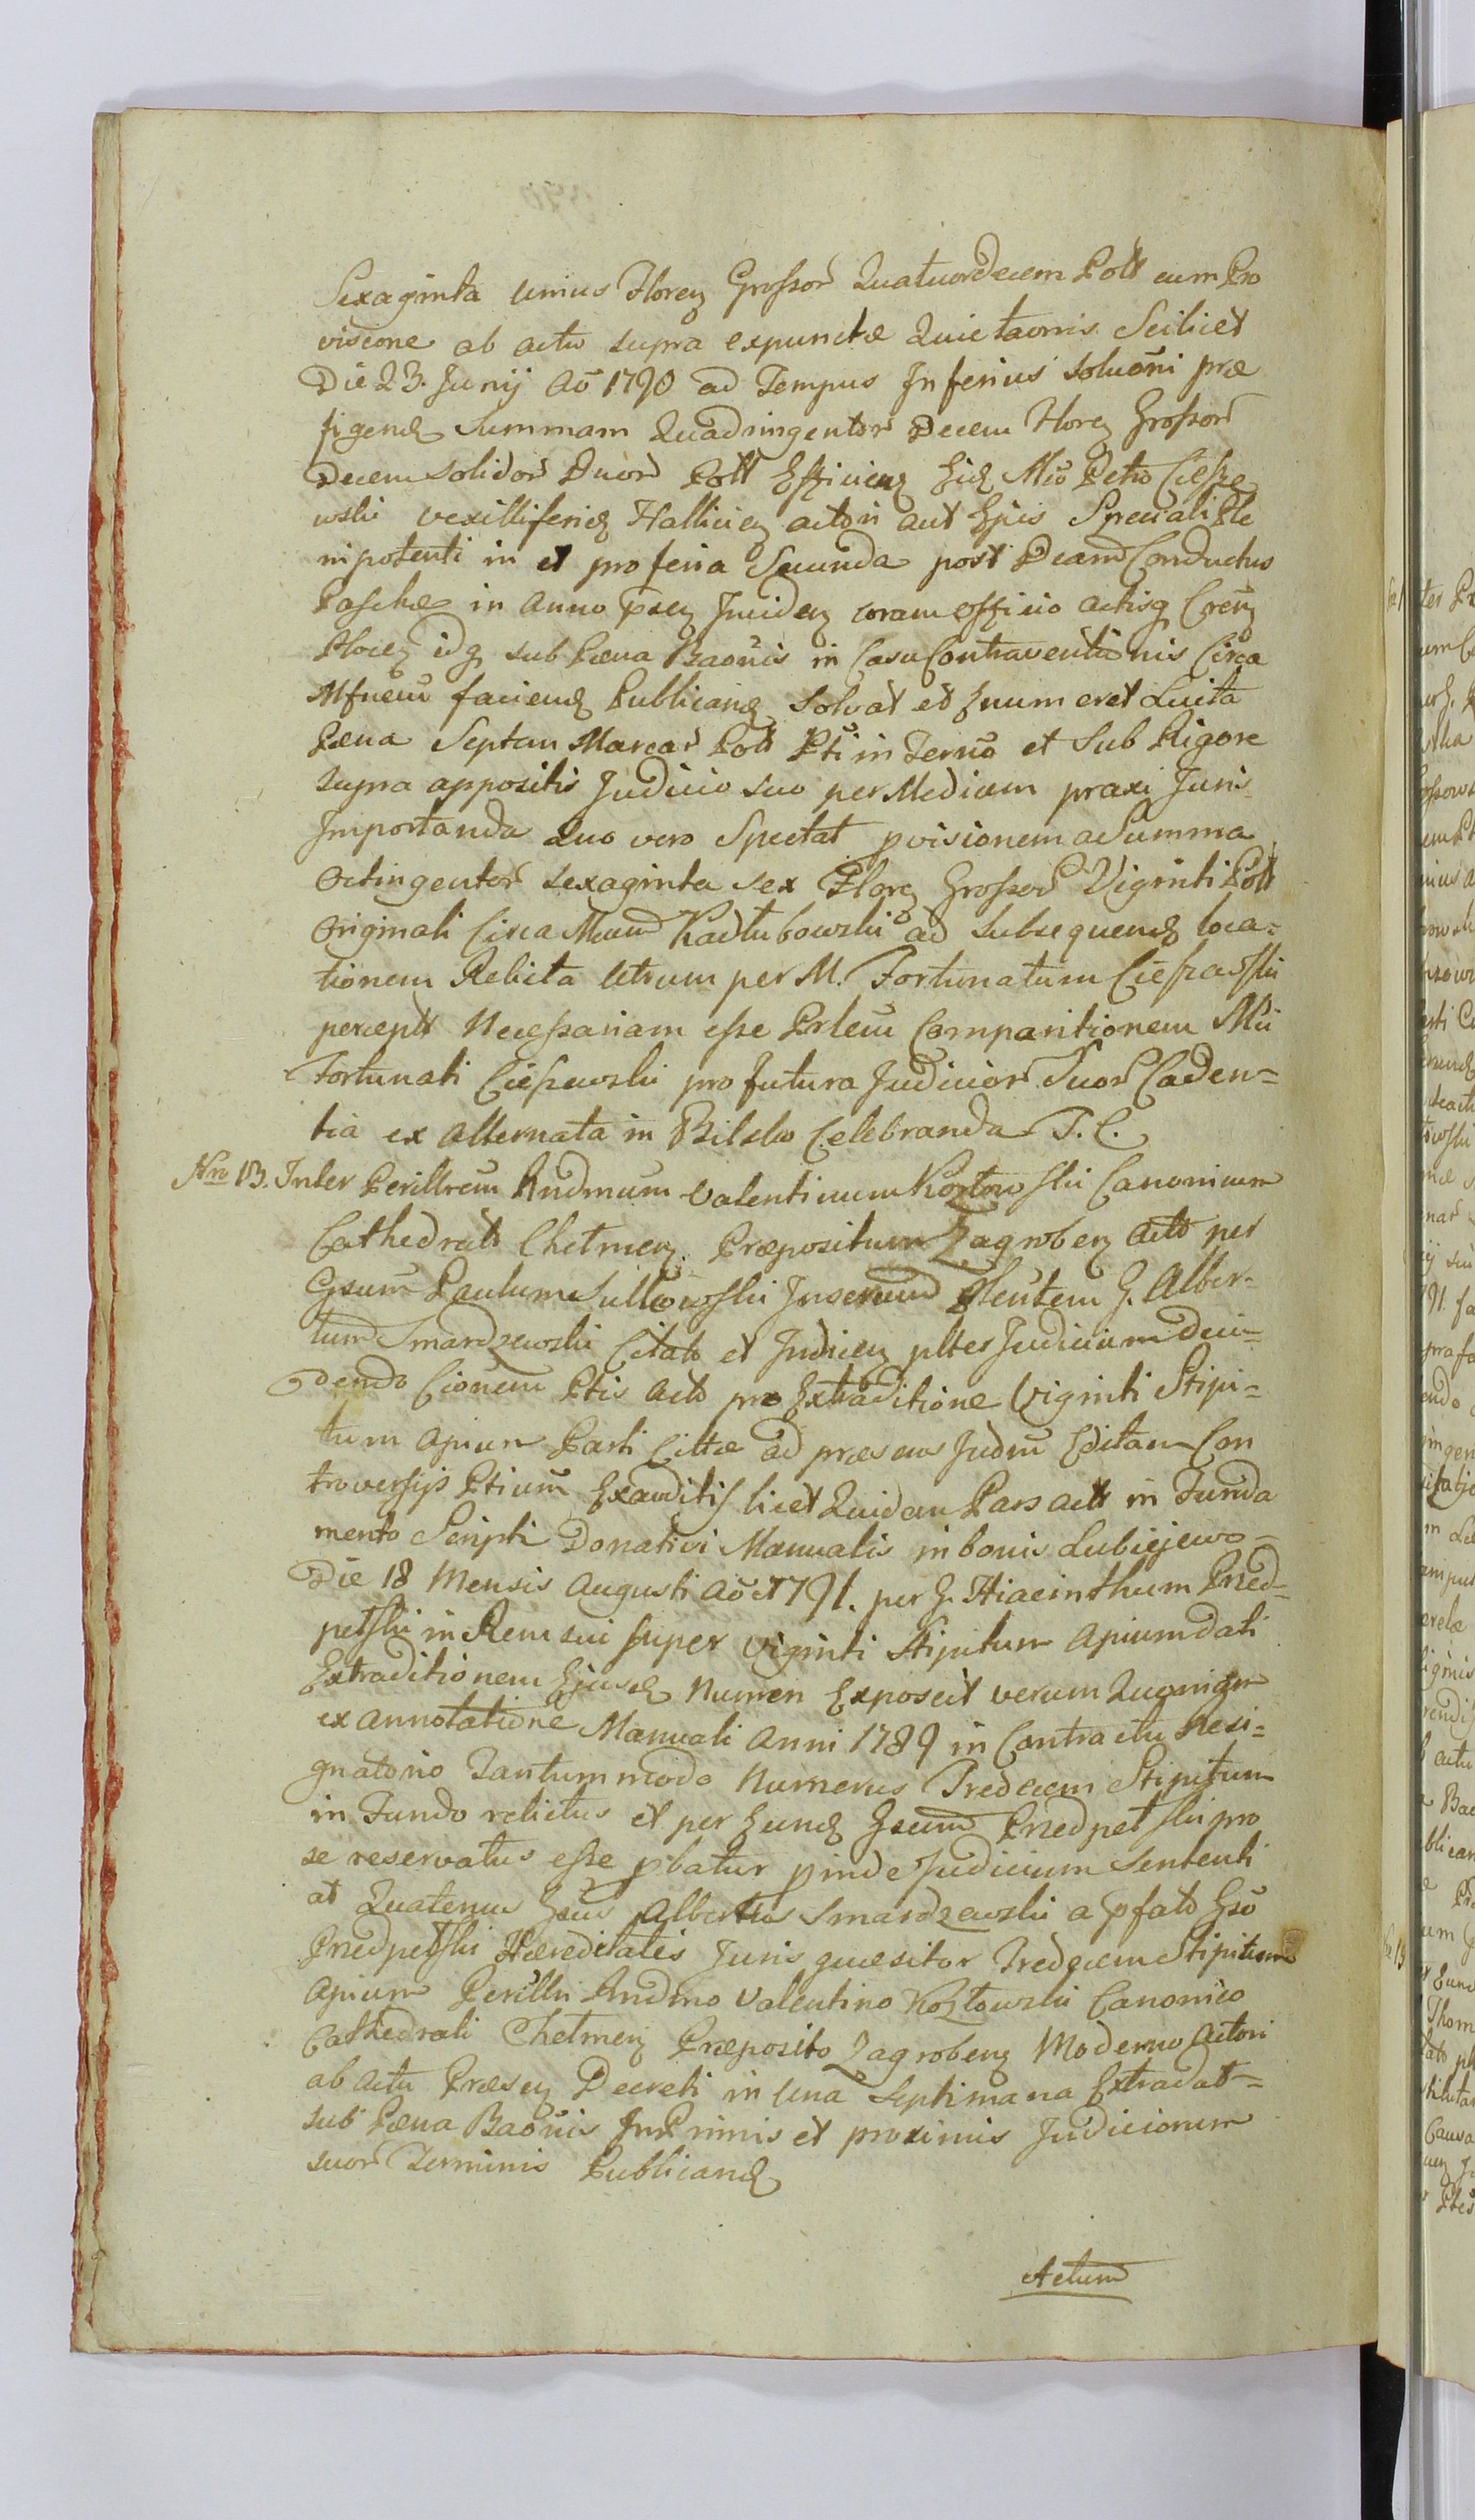 Sexaginta unius Floreņ Grossor Quatuordecem Poll cum Pro
visione ab actu supra expunctæ Quietaonis Scilicet
Die 23. Junij Aõ 1790 ad Tempus Inferius soluõni præ
figend Summam Quadringentor Decem Floreņ Grossor
Decem solidor Duor Poll Efficieņ Eid Mco Petro Ciesze
wski vexilliferid Halliciens actori aut Ejus Speciali Ple
nipotenti in et pro feria Secunda post Dcam Conductus
Paschæ in Anno præseņ Incideņ coram officio actisq Crẽn
Ploceņ idq sub Pæna Baõnis in Casu Contraventionis Circa
faciend Publicand solvat et Enumeret Luita
Pæna Septem Marcar Poll Pti in Termõ et sub Rigore
supra appositis Judicio suo per Medium praxi Juris
Importanda Quo vero Spectat pvisionem a Summa
Octingentor sexaginta sex Floreņ Grossor Viginti Poll
Originali Circa Mcum Kadłubowski ad subsequend loca=
tionem Relicta Utrum per M. Fortunatum Cieszewski
percepta Necessariam esse Prlem Comparitionem Mci
Fortunati Cieszewski pro futura Judicior Suor Caden=
tia ex alternata in Bilsko Celebranda T. C.
Nro 13. Inter Perillrem Rndmum Valentinum Kozłowski Canonicum
Cathedralem Chełmeņ. Præpositum Zagrobeņ Acto per
Gsum Paulum Sulkowski Inserend Plentem G. Alber=
tum Smardzewski Citato et Indiceņ pltes Judicium deci=
dendo Cionem Ptis Acto pro Extraditione Viginti Stipi=
tum Apium Parti Cittæ ad præsens Judm Editam Con
troversijs Ptium Exauditis licet Quidem Pars actt in Funda
mento Scripti Donativi Manualis in bonis Lubiejewo
Die 18 Mensis Augusti Aõ 1791. per G. Hiacinthum Przed=
pełski in Rem sui super Viginti Stipitum Apium dati
Extraditionem Ejusd Numeri Exposcit verum Quoniam
ex Annotatione Manuali Anni 1789 in Contractu Resi=
gnatorio Tantummodo Numerus Tredecem Stipitum
in Fundo relictus et per Eund Gsum Przedpełski pro
se reservatus esse pbatur pinde Judicium Sententi
at Quatenus Gsus Albertus Smardzewski a pfato Gso
Przedpełski Hæreditatis Juris quæsitor Tredecem Stipitum
Apium Perillri Rndmo Valentino Kozłowski Canonico
Cathedrali Chełmeņ Præposito Zagrobeņ Moderno Actori
ab actu Præseņ Decreti in Una Septimana Extradat
sub Pæna Baõnis In Primis et proximis Judiciorum
suor Terminis Publicand
Actum